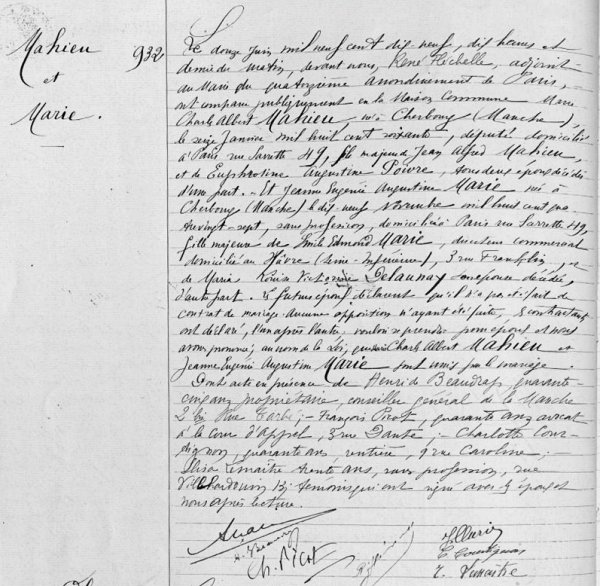 Mahieu
et
Marie.
932
Le douze Juin mil neuf cent dix-neuf, dix heures et
demie du matin, devant nous, René Fléchelle, adjoint
au Maire du quatorzième arrondissement de Paris,
ont comparu publiquement en la Maison Commune Marie
Charles Albert Mahieu, né à Cherbourg (Manche),
le seize Janvier mil huit cent soixante, député domicilié
à Paris rue Sarrette 49, fils majeur de Jean Alfred Mahieu,
et de Euphrosine Augustine Poivre, tous deux époux décédés
d'une part. - Et Jeanne Eugénie Augustine Marie née à
Cherbourg (Manche) le dix-neuf Novembre mil huit cent qua
tre vingt-sept, sans profession, domiciliée à Paris rue Sarrette 49,
fille majeure de Emile Edmond Marie, directeur commercial
domicilié au Hâvre (Seine-Inférieure), 3 rue Franklin, et
de Maria Louise Victorine Delaunay son épouse décédée,
d'autre part. - Les futurs époux déclarent qu'il n'a pas été fait de
contrat de mariage. Aucune opposition n'ayant été faite, les contractants
ont déclaré, l'un après l'autre vouloir se prendre pour époux et nous
avons prononcé, au nom de la Loi, que Marie Charles Albert Mahieu et
Jeanne Eugénie Augustine Marie sont unis par le mariage.
Dont acte en présence de Henri de Beaudrap, quarante-
cinq ans, propriétaire, conseiller général de la Manche
2 bis rue Tarbé; - François Picot, quarante ans, avocat
à la Cour d'Appel, 3 rue Dante; - Charlotte Cour-
tignon, quarante ans, rentière, 9 rue Caroline; -
Elisa Lemaitre trente ans, sans profession, rue
Villehardouin 13; témoins qui ont signé avec les époux et
nous après lecture.
J Marie
Ch. Picot
C Courtignon
E. Lemaitre